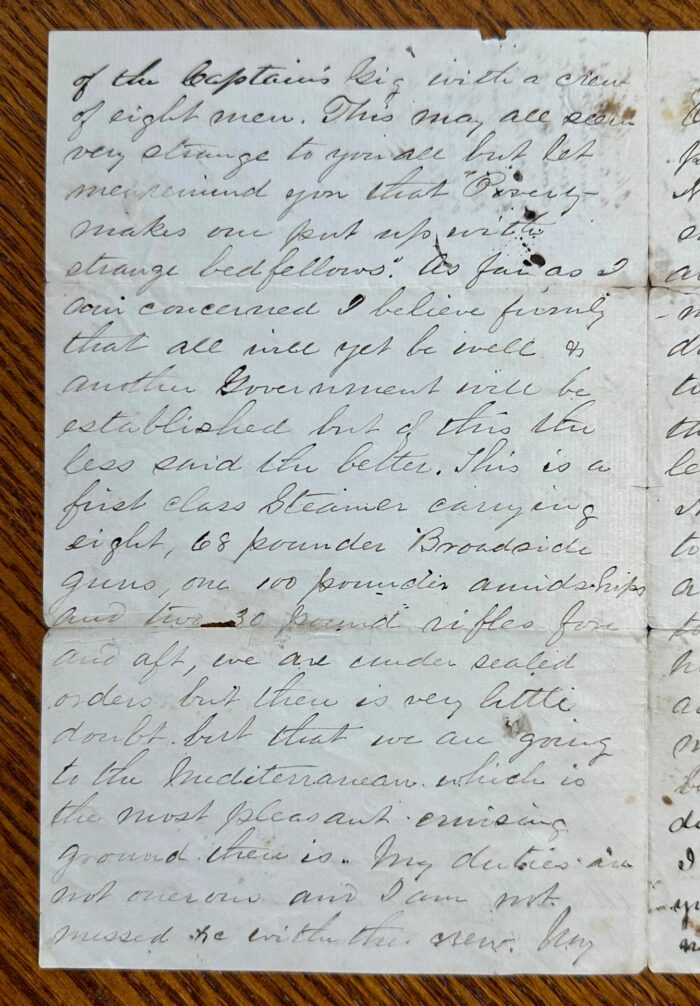 of the Captain's Gig with a crew
of eight men. This may all seem
very strange to you all but let
me remind you that "Poverty
makes one put up with
strange bedfellows". As far as I
am concerned I believe firmly
that all will yet be well &
another Government will be
established but of this the
less said the better. This is a
first class Steamer carrying
eight, 68 pounder Broadside
guns, one 100 pounder amidships
and two 30 pound" rifles fore
and aft, we are under sealed
orders but there is very little
doubt but that we are going
to the Mediterranean which is
the most pleasant cruising
ground there is. My duties are
not onerous and I am not
messed &c with the crew. My